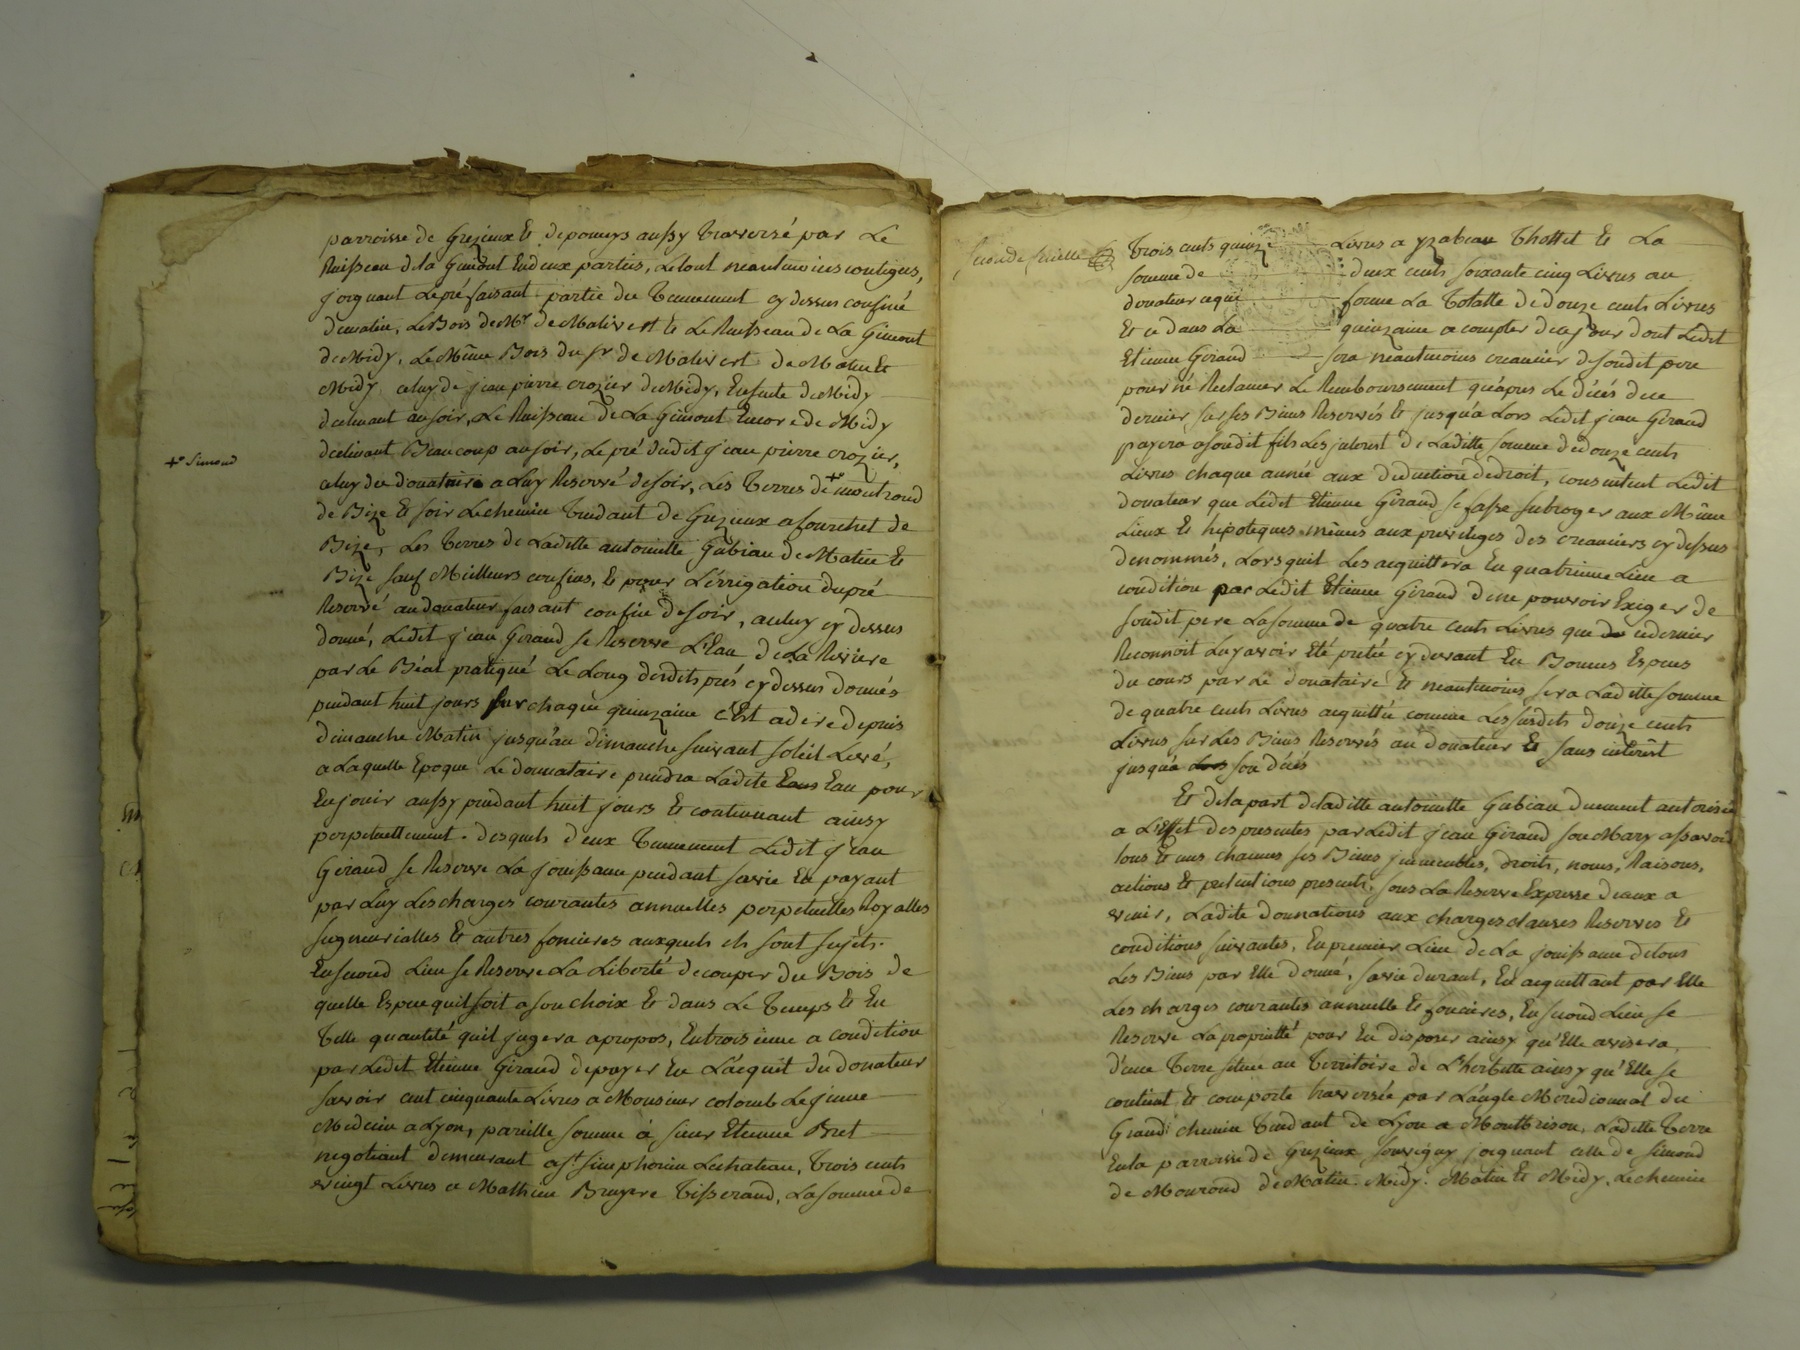 parroisse de Grezieux Et de pomeys aussy traversé par Le
Ruisseau dela Gimont En deux parties, Le tout neantmoins contigus,
joignant Le pré faisant partie du Tennement cy dessus confiné
dematin, Le Bois de Mr de Malivert Et Le Ruisseau de La Gimont
de Midy, Le Même Bois du sr de Malivert de Matin Et
Midy celuy de jean pierre crozier de Midy, Ensuite de Midy
declinant au soir, Le Ruisseau de La Gimont Encore de Midy
declinant Beaucoup au soir, Le pré dudit jean pierre crozier,
+º Simond
celuy du donataire a Luy Reservé de soir, Les Terres de +º montrond
de Bize Et soir Le chemin Tendant de Grezieux a fourchet de
Bize, Les Terres de Laditte antoinette Gubian de Matin Et
Bize sauf Meilleurs confins, Et pour L'irrigation du pré
Reservé au donateur faisant confin de soir, a celuy cy dessus
donné, Ledit jean Giraud se Reserve L'Eau de La Riviere
par Le Béal pratiqué Le Long desdits prés cy dessus donnés
pendant huit jours sur chaque quinzaine c'Est a dire depuis
dimanche Matin jusqu'au dimanche suivant soleil Levé,
a Laquelle Epoque Le donnataire prendra Ladite Eau pour
En jouir aussy pendant huit jours Et continuant ainsy
perpetuellement. desquels deux Tennement Ledit jean
Giraud se Reserve La jouissance pendant sa vie En payant
par Luy Les charges courantes annuelles perpetuelles Royalles
seigneurialles Et autres foncieres auxquels ils sont sujets.
En second Lieu se Reserve La Liberté de couper du Bois de
quelle Espece quil soit a son choix Et dans Le Temps Et En
Telle quantité quil jugera apropos, En troisieme a condition
par Ledit Etienne Giraud de payer En L'acquit du donateur
savoir cent cinquante Livres a Monsieur colomb Le jeune
Medecin a Lyon, pareille somme à sieur Etienne Bret
negotiant demeurant a st simphorien Lechateau, Trois cents
vingt Livres a Mathieu Bruyere Tisserand, La somme de
seconde feuille
Trois cents quinze Livres a yzabeau Thollet Et La
somme de deux cents soixante cinq Livres au
donateur ce que forme La Totalle de douze cents Livres
Et ce dans La quinzaine a compter de ce jour dont Ledit
Etienne Giraud sera neantmoins creancier de son dit pere
pour ne Reclamer Le Remboursement qu'apres Le décés de ce
dernier sur ses Biens Reservés Et jusqu'a Lors Ledit jean Giraud
payera a son dit fils Les interest de Laditte somme de douze cents
Livres chaque année aux deduction de droit, consentent Ledit
donateur que Ledit Etienne Giraud se fasse subroger aux Même
Lieux Et hipoteques mêmes aux privileges des creanciers cy dessus
denommés, Lors quil Les acquittera En quatrieme Lieu a
condition par Ledit Etienne Giraud de ne pouvoir Exiger de
son dit pere La somme de quatre cents Livres que ce dernier
Reconnoit Luy avoir Eté pretée cy devant En Bonnes Especes
du cours par Le donataire Et neantmoins sera Laditte somme
de quatre cents Livres acquittée comme Les susdits douze cents
Livres sur Les Biens Reservés au donateur Et sans interêt
jusqu'a son décés
Et de la part de laditte antoinette Gubian duement autorisée
a L'Effet des presentes par Ledit jean Giraud son Mary assavoir
tous Et uns chacuns ses Biens immeubles, droits, noms, Raisons,
actions Et pretentions presents, sous La Reserve Expresse d'eaux a
venir, Ladite donnations aux charges clauses Reserves Et
conditions suivantes, En premier Lieu de La jouissance de tous
Les Biens par Elle donné, sa vie durant, En acquittant par Elle
Les charges courantes annuelle Et foncieres, En second Lieu se
Reserve La proprietté pour En disposer ainsy qu'Elle avisera
d'une Terre situe au Territoire de L'herbette ainsy qu'Elle se
contient Et comporte traversée par L'angle Meridionnal du
Grand chemin Tendant de Lyon a Montbrison, Laditte Terre
En la parroisse de Grezieux souvigny joignant celle de simond
de Monrond de Matin. Midy. Matin Et Midy, Le chemin